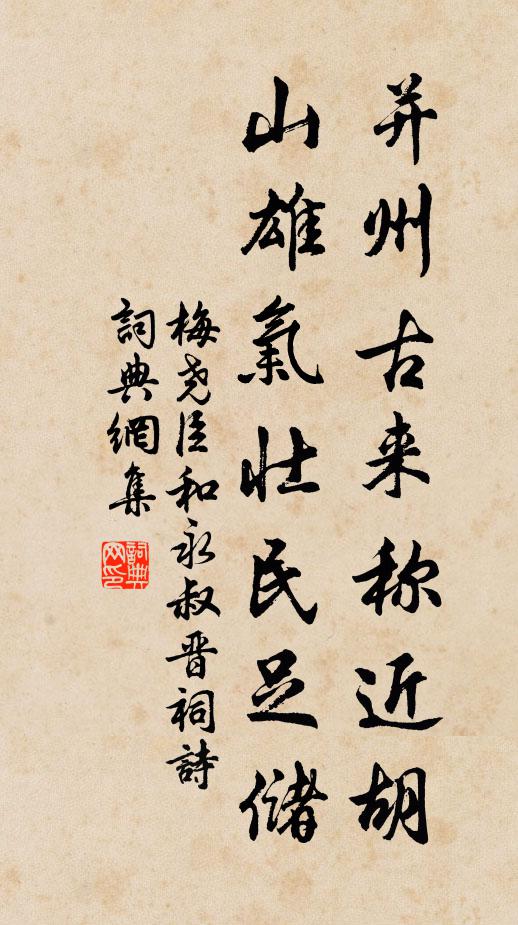 并州古来称近胡
山雄氣壮民足储
梅尧臣和永叔晋祠詩
詞典網集
詞典網印